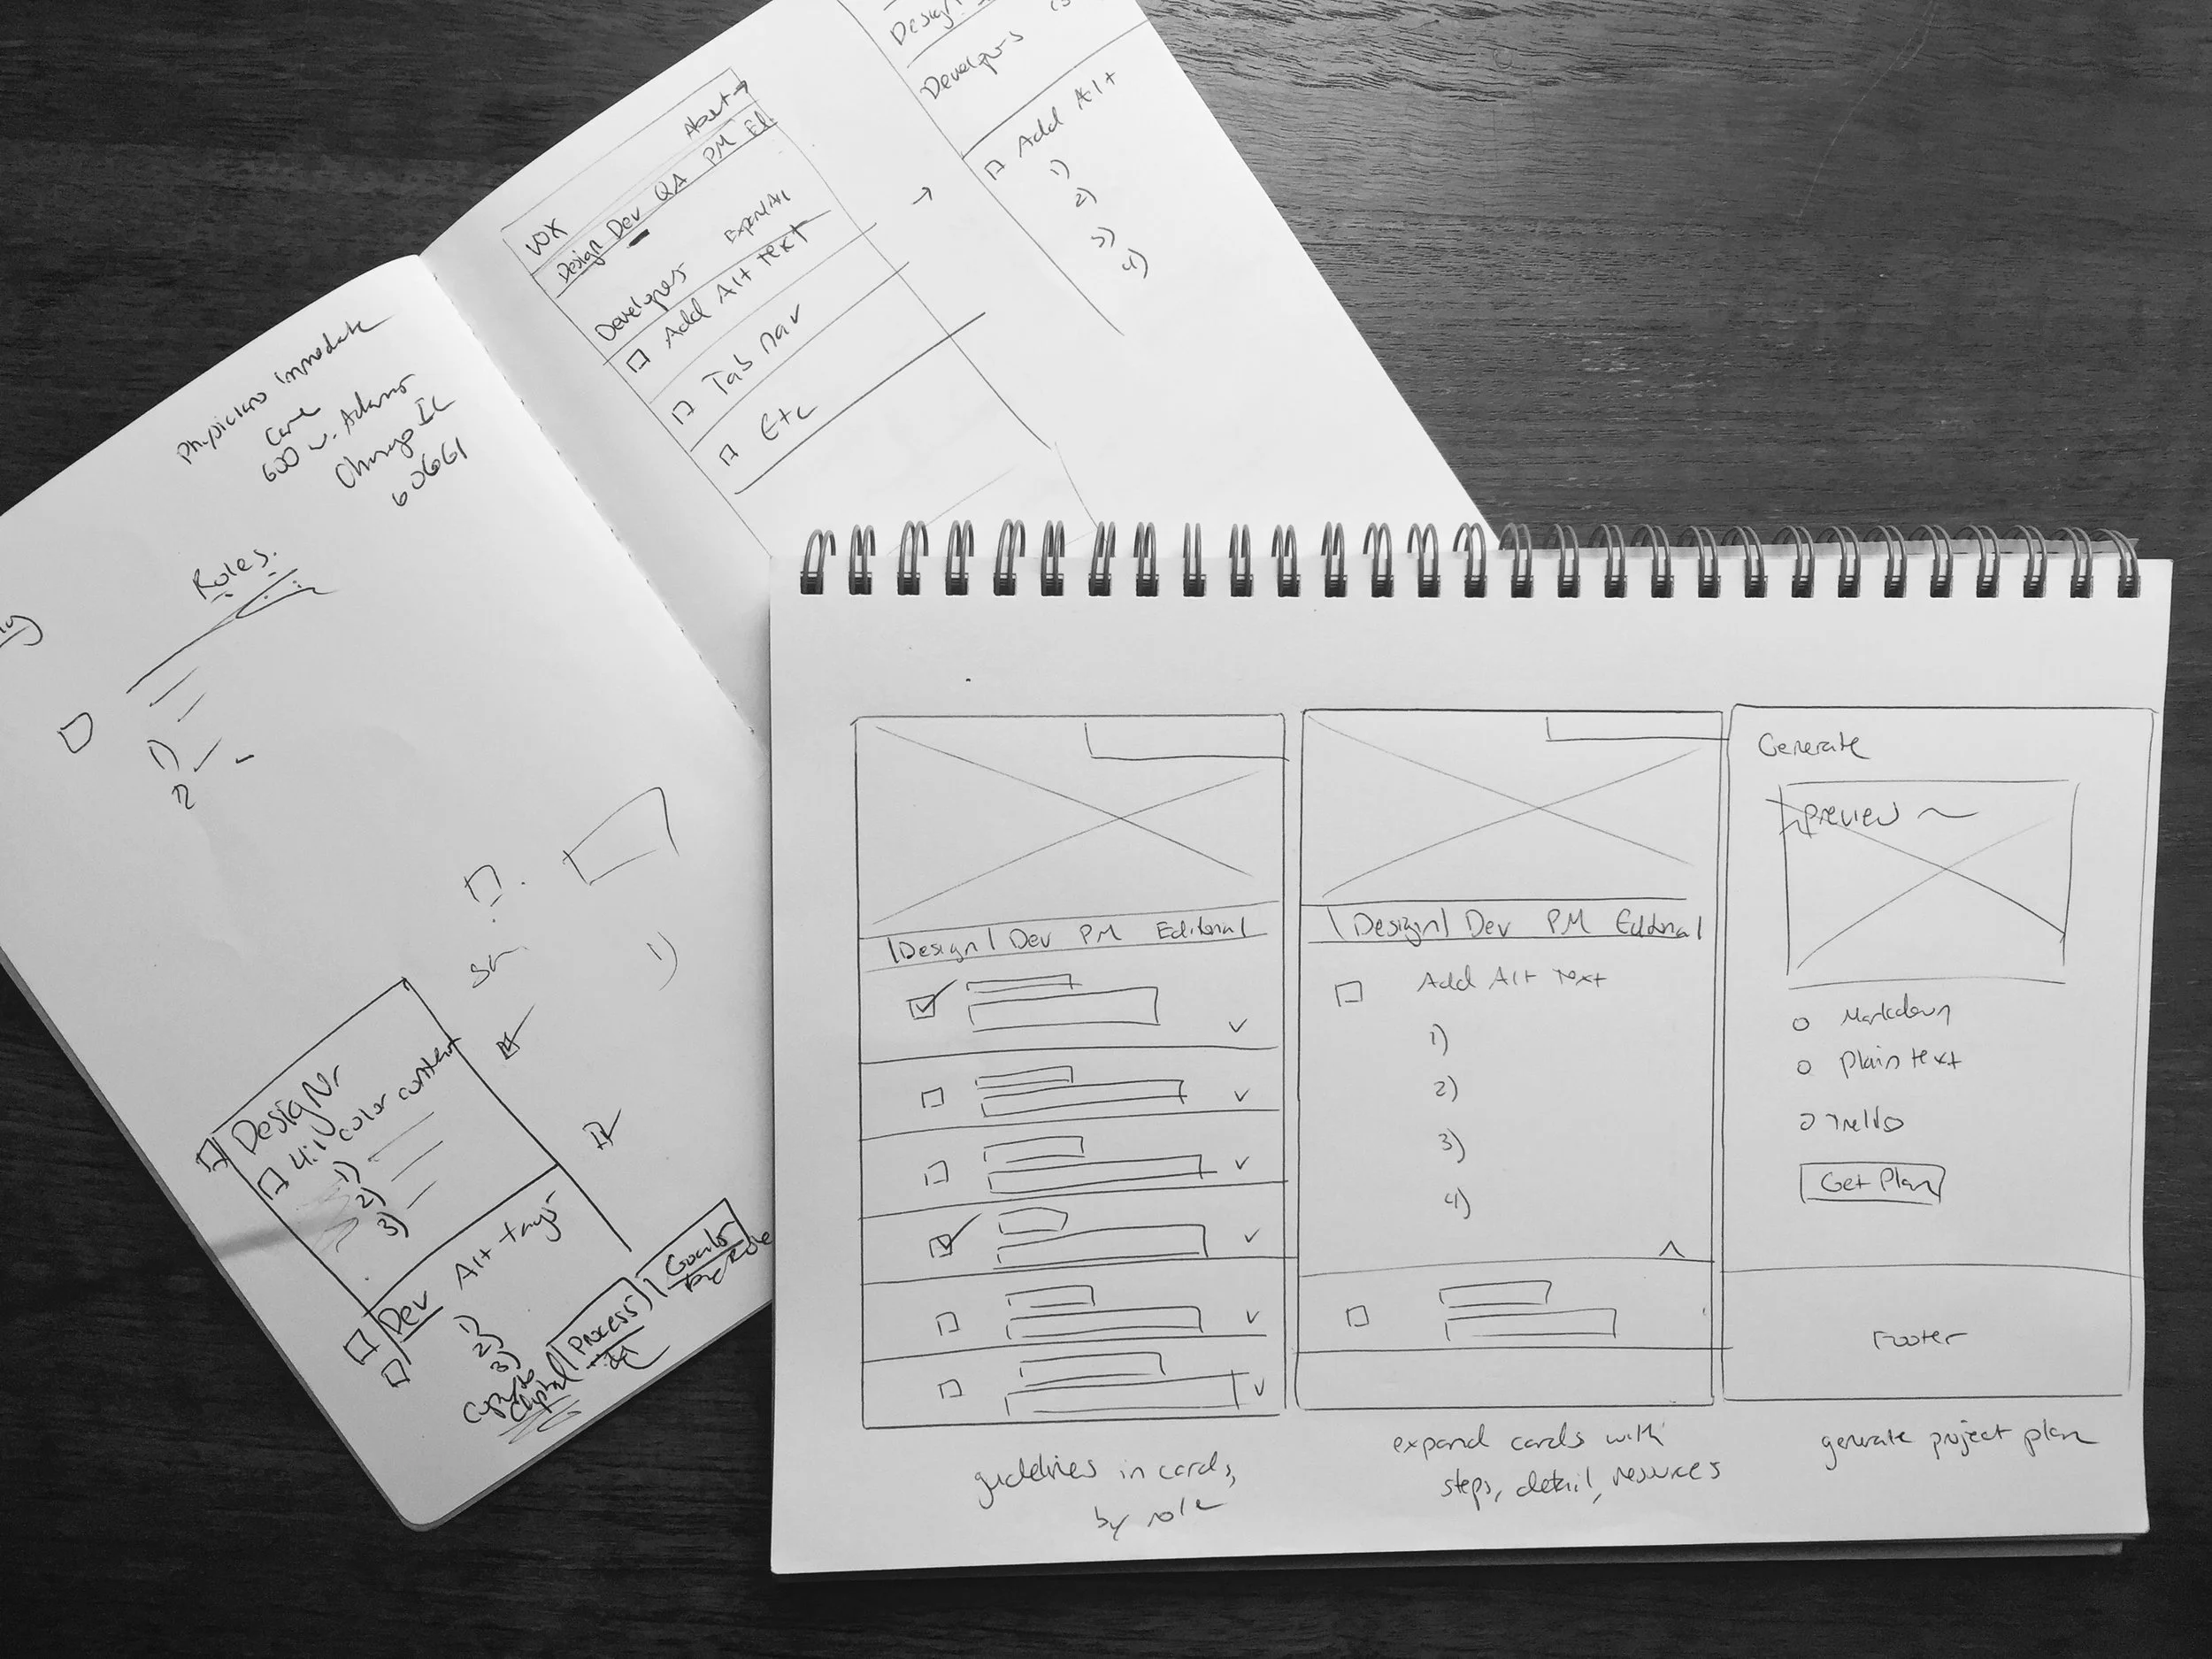 Physicians Immediate
Care
600 W. Adams
Chicago IL
60661
Roles.
1)
2
1)
Designr
4:1 color contrast
1)
2)
3)
Dev Alt tags
1)
2)
3)
Process
Goals
About →
VOX
Design Dev QA PM Ed.
Developers Expand All
Add Alt text
Tab nav
Etc
→
Design
Developers
Add Alt
1)
2)
3)
4)
|Design| Dev PM Editorial
guidelines in cards,
by role
|Design| Dev PM Editorial
Add Alt Text
1)
2)
3)
4)
expand cards with
steps, detail, resources
Generate
Preview
Markdown
Plain text
Trello
Get Plan
Footer
generate project plan